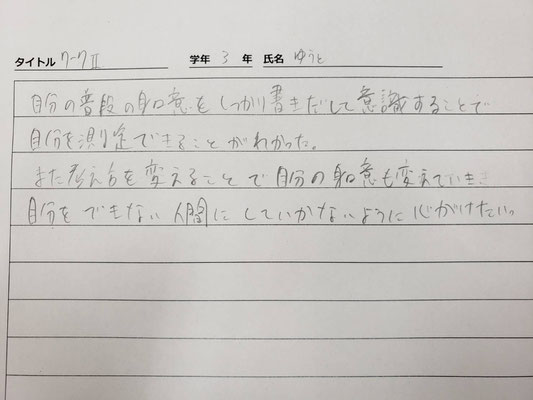 タイトル ワークⅡ 学年 3 年 氏名 ゆうと
自分の普段の身口意をしっかり書きだして意識することで
自分を測定できることがわかった。
また考え方を変えることで自分の身口意も変えていき
自分をできない人間にしていかないように心がけたい。